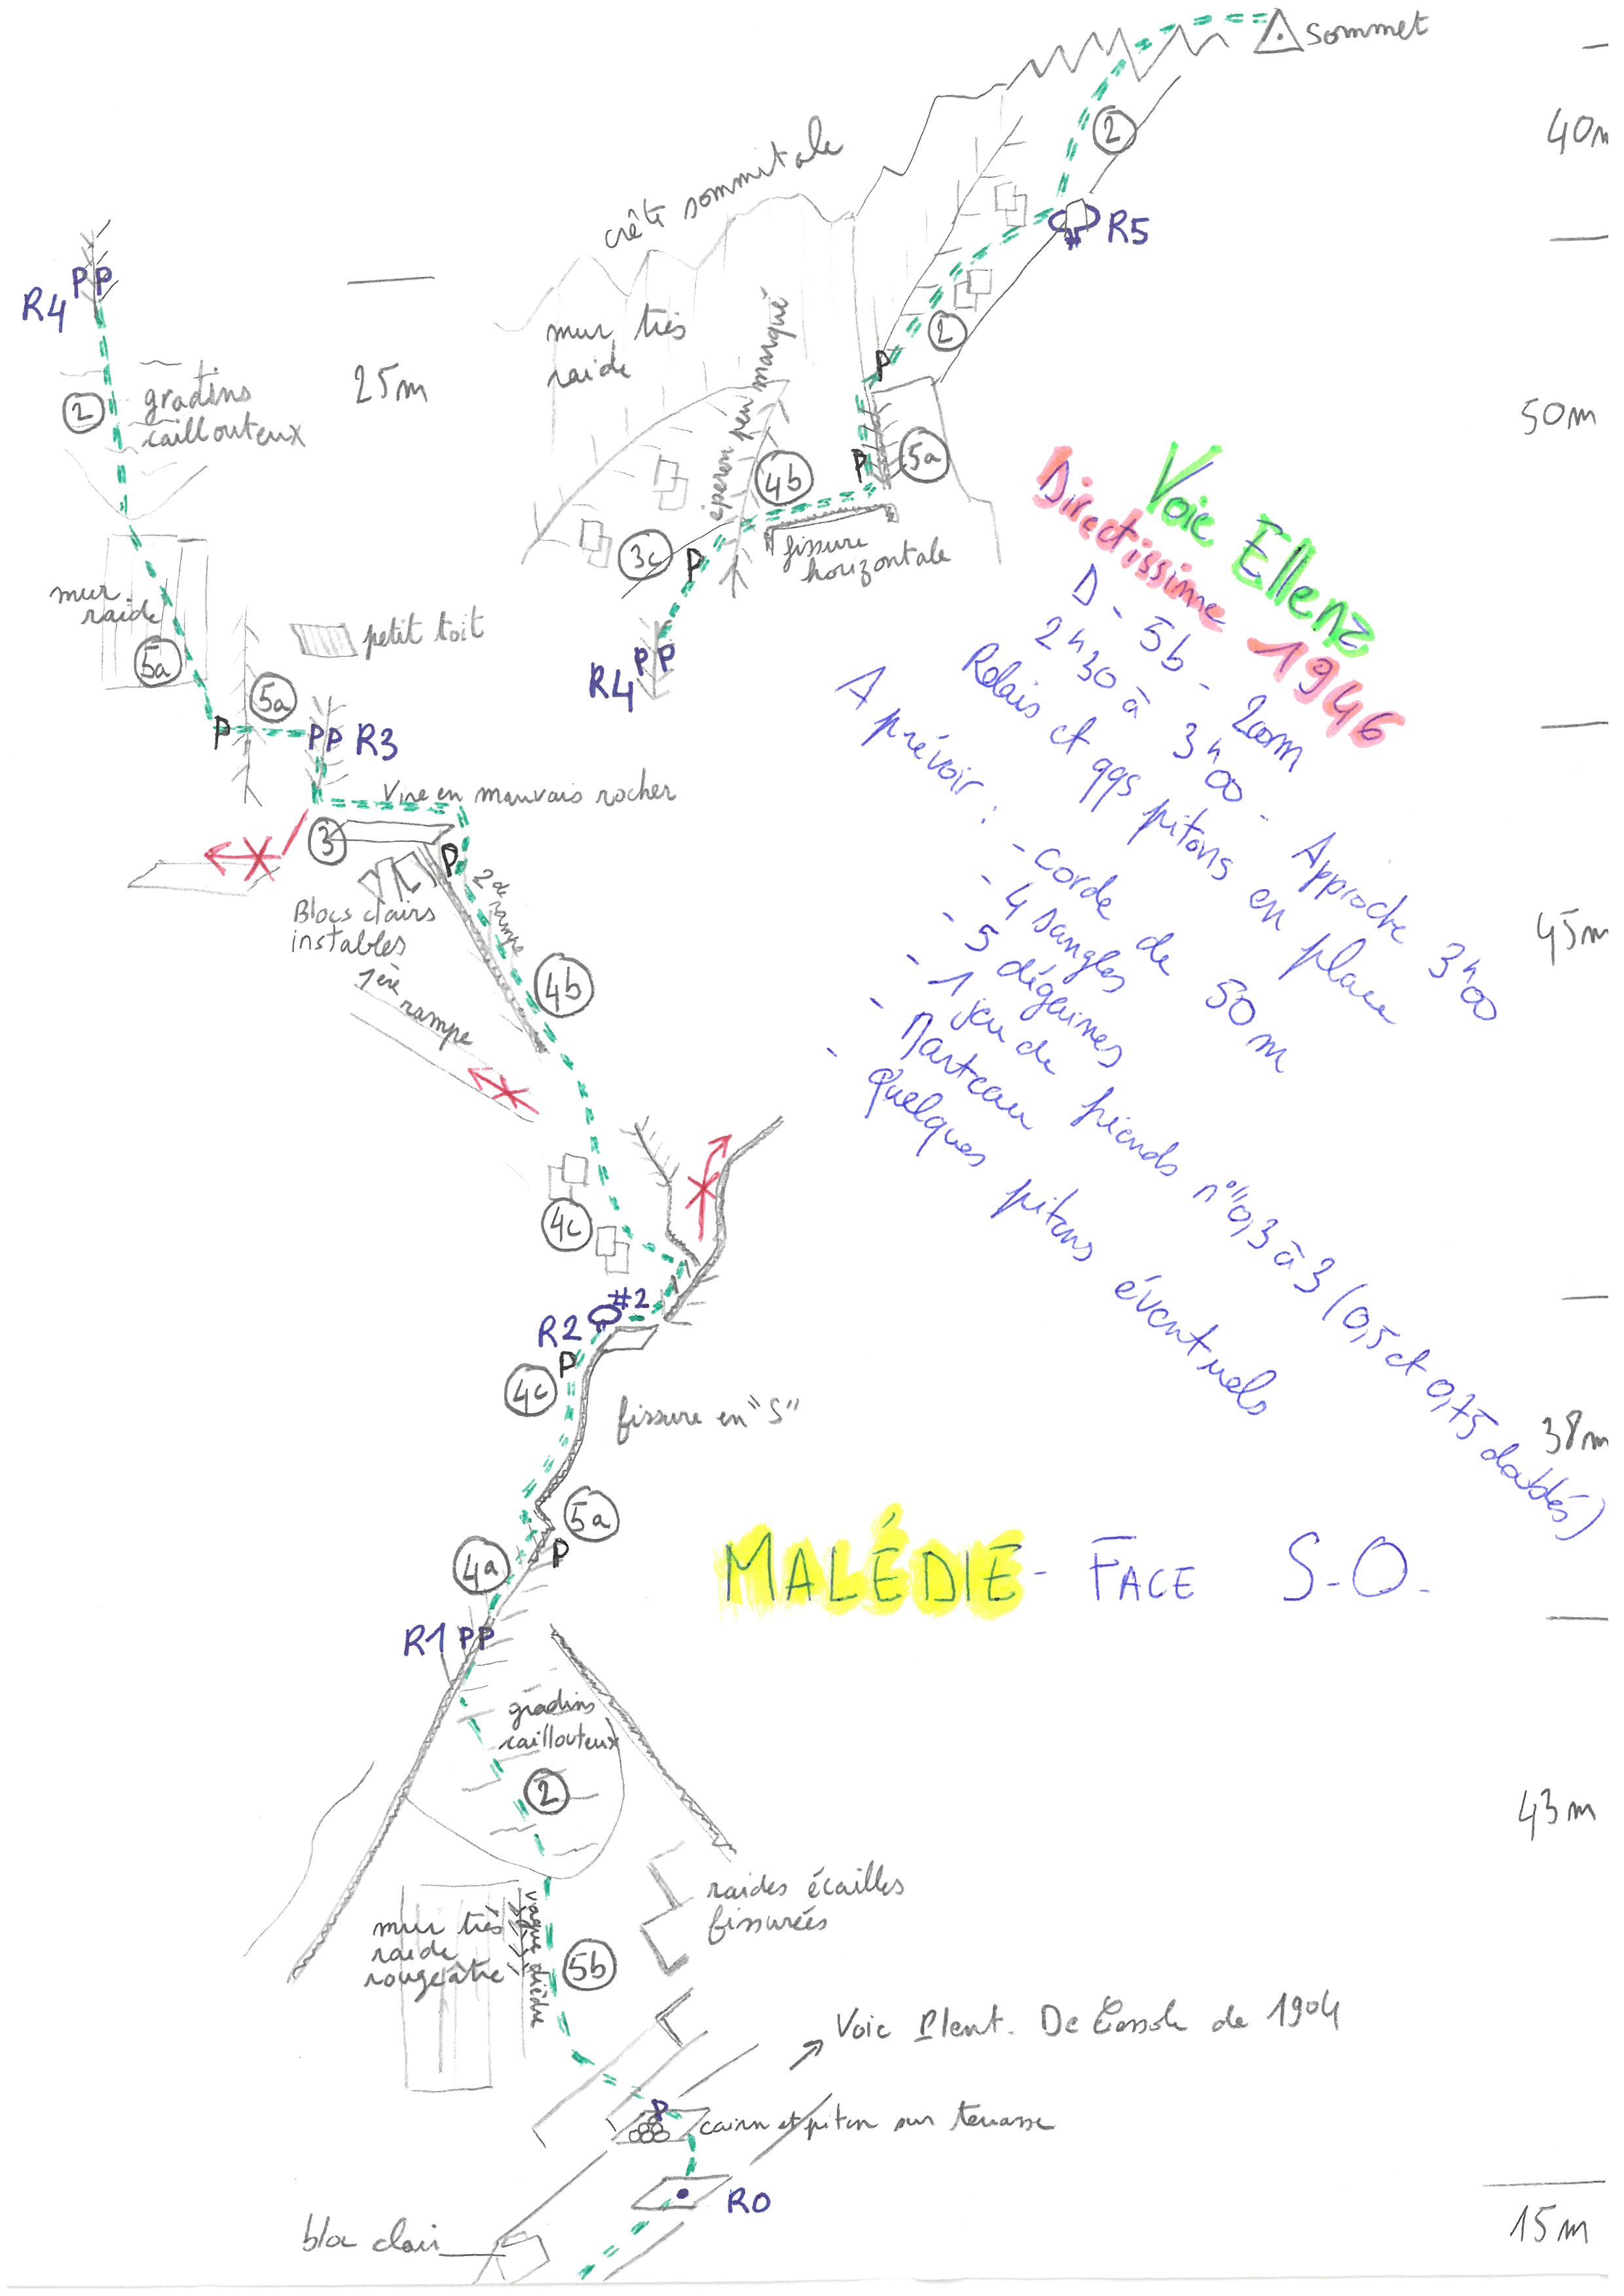 sommet
40m
2
crête sommitale
R5
P P
R4
25m
mur très
raide
éperon peu marqué
2
P
2
gradins
caillouteux
50m
5a
P
4b
3c
P
fissure
horizontale
Voie Ellenz
Directissime 1946
D - 5b - 200m
2h30 à 3h00 - Approche 3h00
Relais et qqs pitons en place
A prévoir :
- corde de 50m
- 4 sangles
- 5 dégaines
- 1 jeu de friends n°" 0,3 à 3 (0,5 et 0,75 doublés)
- Marteau
- Quelques pitons éventuels
mur
raide
petit toit
5a
P P
R4
5a
P
PP R3
Vire en mauvais rocher
3
P
2de rampe
Blocs clairs
instables
45m
1ère rampe
4b
4c
#2
R2
P
4c
fissure en "S"
38m
5a
P
4a
MALÉDIE - FACE S.O.
R1 PP
gradins
caillouteux
2
43m
raides écailles
fissurées
mur très
raide
rougeâtre
vague dièdre
5b
Voie Plent. De Cessole de 1904
P
cairn et piton sur terrasse
R0
bloc clair
15m